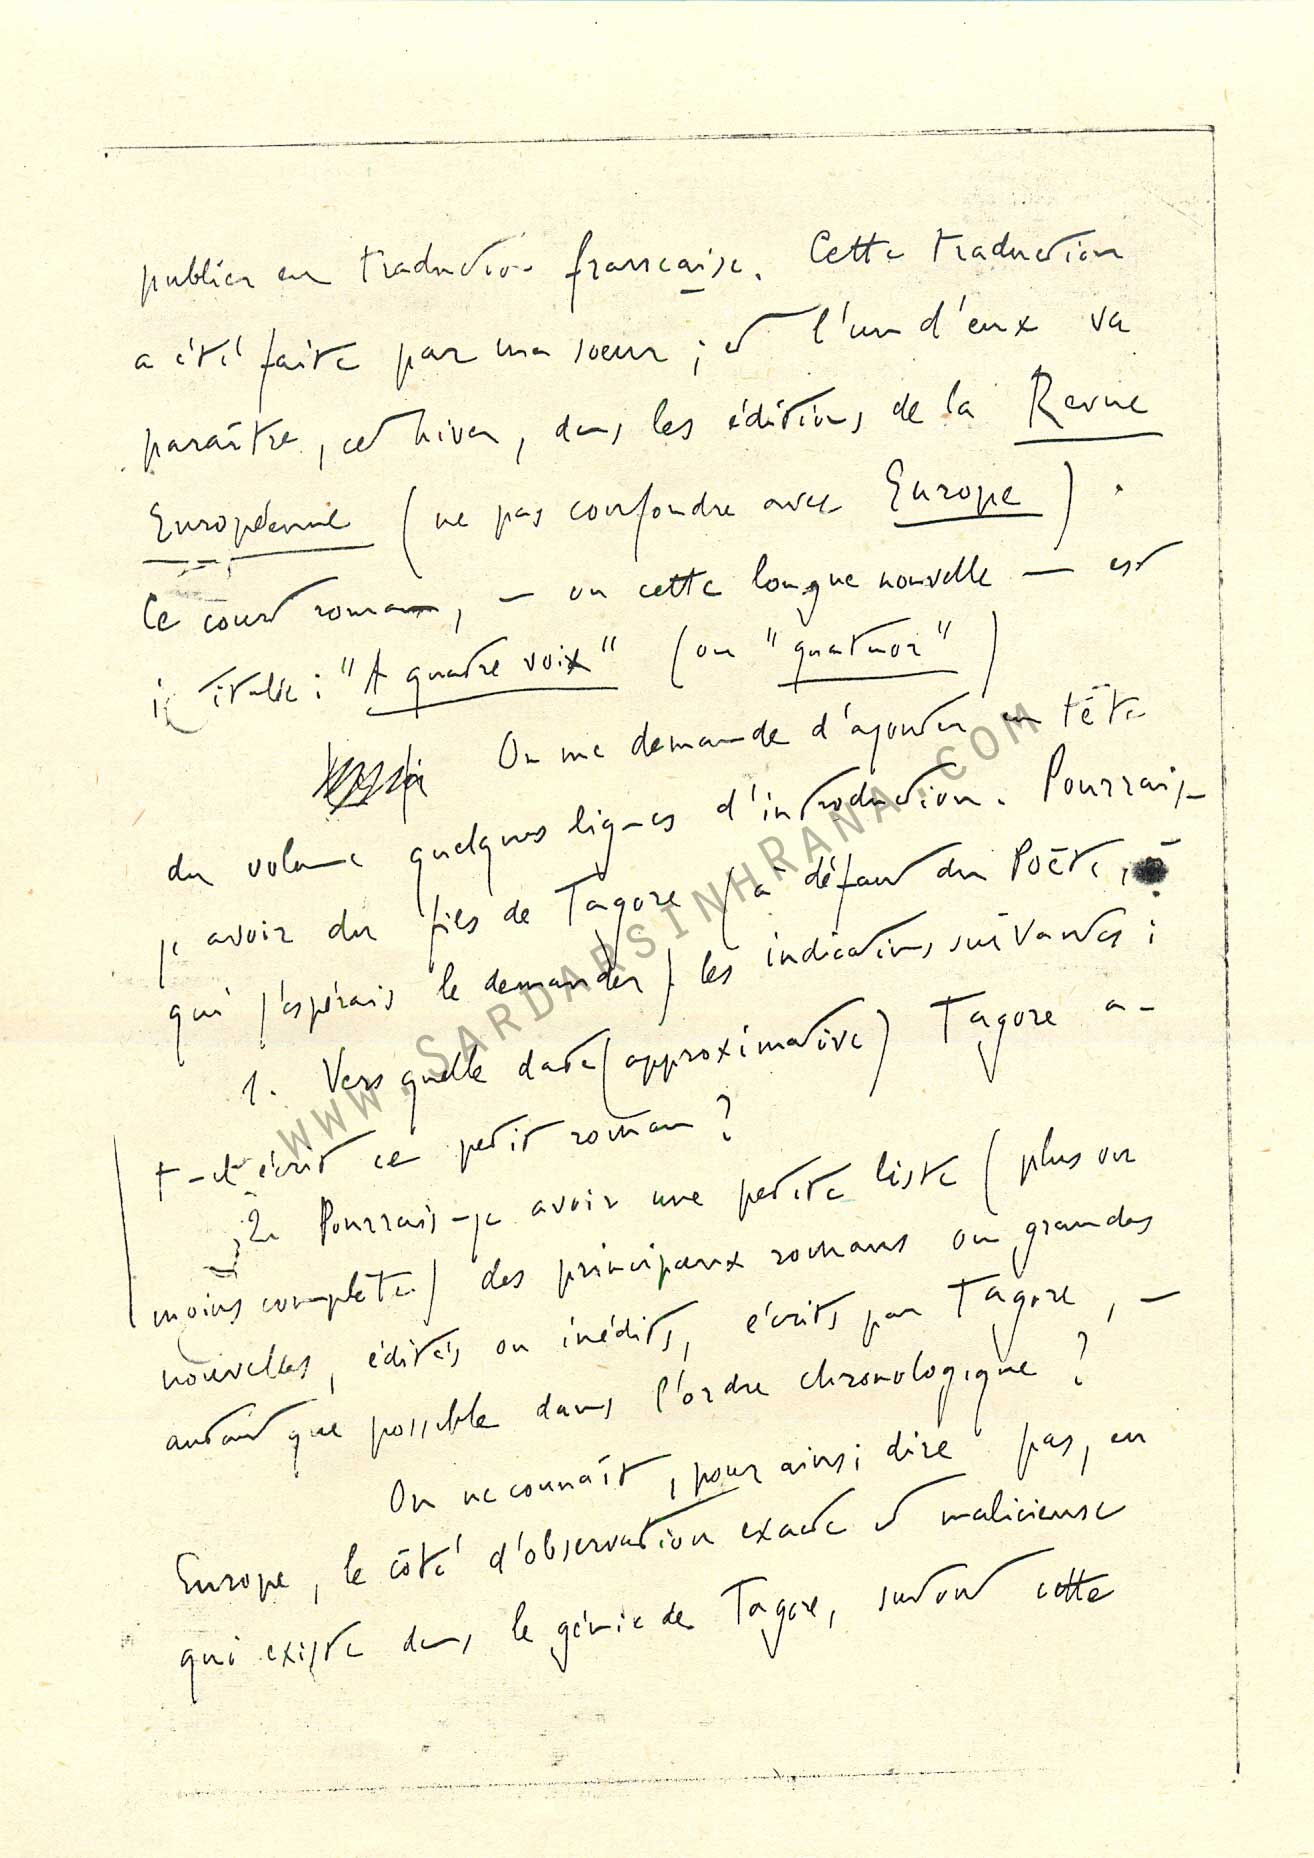 publier en traduction française. Cette traduction
a été faite par ma soeur ; et l'un d'eux va
paraître, cet hiver, dans les éditions de la Revue
Européenne (ne pas confondre avec Europe).
Ce court roman, — ou cette longue nouvelle — est
intitulé : "A quatre voix" (ou "quatuor")
On me demande d'ajouter en tête
du volume quelques lignes d'introduction. Pourrais-
je avoir du fils de Tagore (à défaut du Poète, à
qui j'espérais le demander) les indications suivantes :
1. Vers quelle date (approximative) Tagore a-
t-il écrit ce petit roman ?
2. Pourrais-je avoir une petite liste (plus ou
moins complète) des principaux romans ou grandes
nouvelles, édités ou inédits, écrits par Tagore, —
autant que possible dans l'ordre chronologique ?
On ne connaît, pour ainsi dire pas, en
Europe, le côté d'observation exacte et malicieuse
qui existe dans le génie de Tagore, surtout cette
www.SARDARSINHRANA.COM